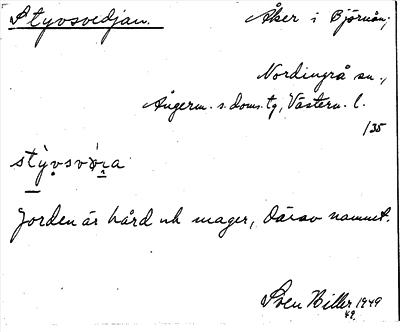 Styvsvedjan.
Åker i Björnån,
Nordingrå sn.,
Ångerm. s. doms. tg, Västern. l.
135
Jorden är hård och mager, därav namnet.
Sven Hiller 1949
49.